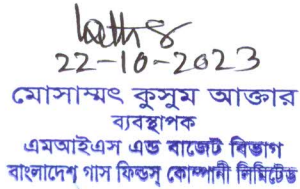 22-10-2023
মোসাম্মৎ কুসুম আক্তার
ব্যবস্থাপক
এমআইএস এন্ড বাজেট বিভাগ
বাংলাদেশ গ্যাস ফিল্ডস্ কোম্পানী লিমিটেড